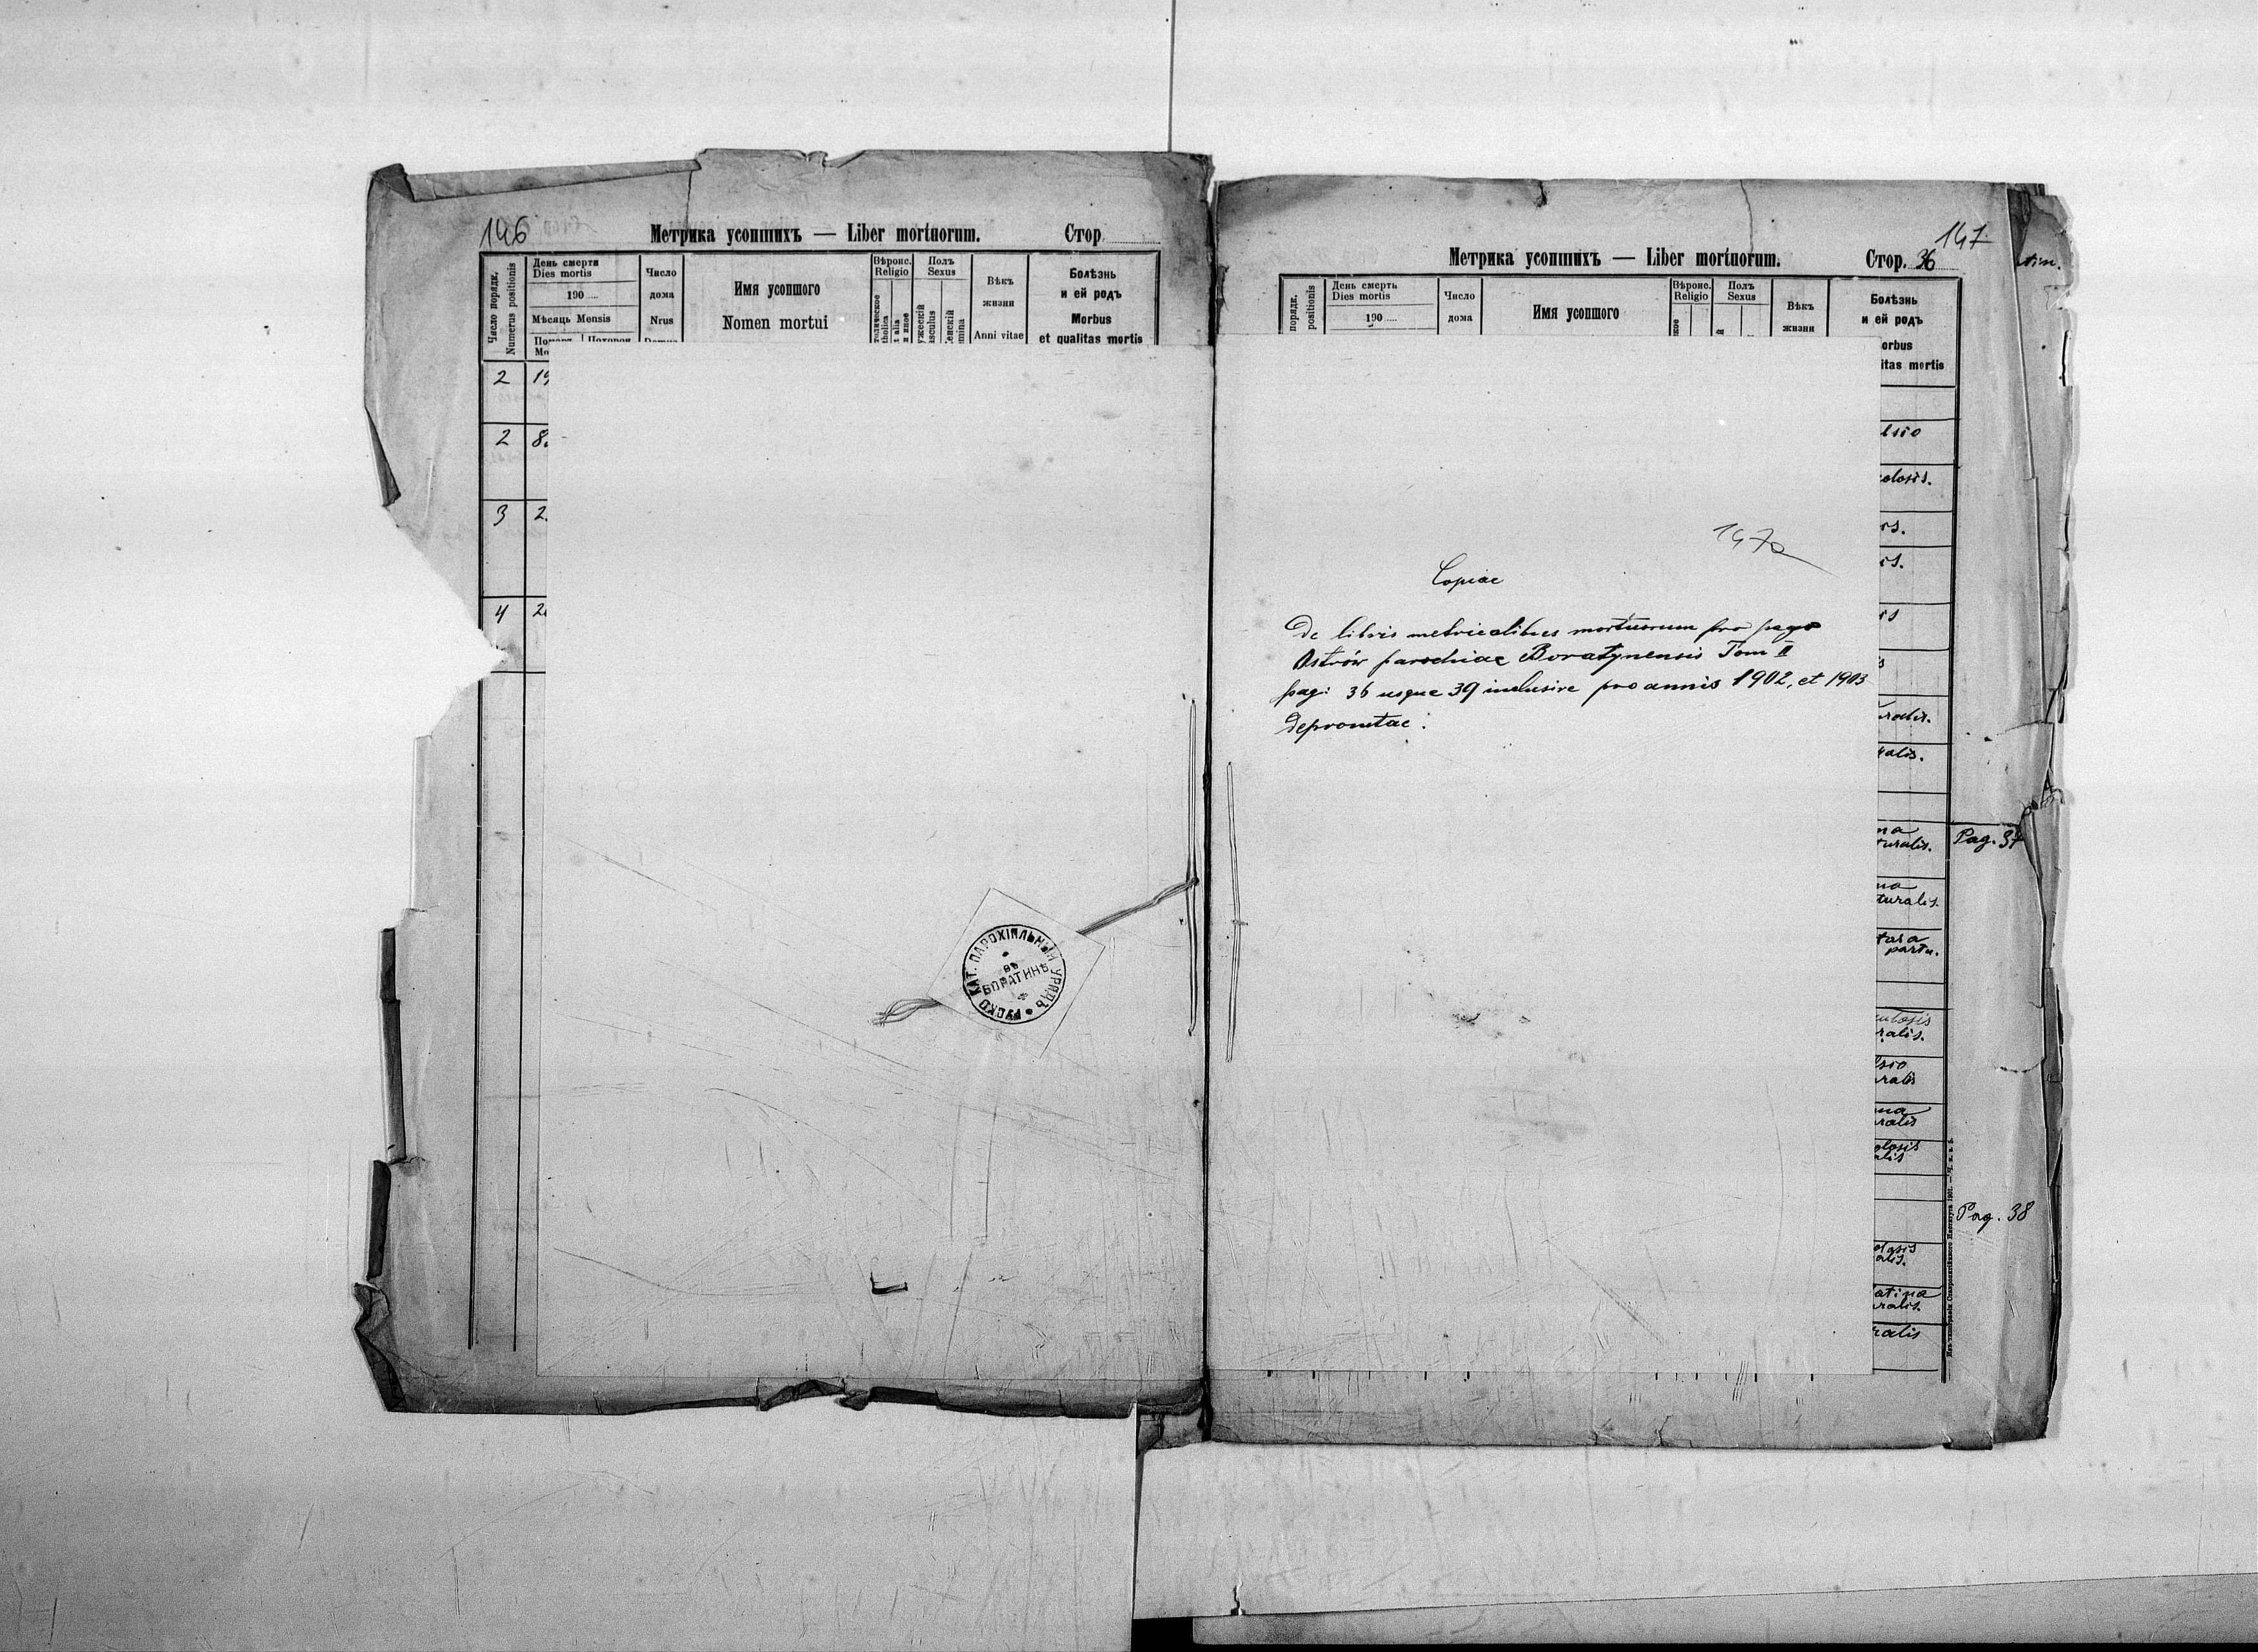 146
Метрика усопшихъ — Liber mortuorum. Стор.
Число порядк.
Numerus positionis
День смерти
Dies mortis
190
Мѣсяць Mensis
Число
дома
Nrus
Имя усопшого
Nomen mortui
Вѣроис.
Religio
Полъ
Sexus
Вѣкъ
жизни
Anni vitae
Болѣзнь
и ей родъ
Morbus
et qualitas mortis
2 19
2 8.
3 2.
4
РУСКО КАТ. ПАРОХІЯЛЬНЫЙ УРЯДЪ
въ
БОРАТИНѢ
147
Метрика усопшихъ — Liber mortuorum. Стор. 36
порядк.
positionis
День смерть
Dies mortis
190
Число
дома
Имя усопшого
Вѣроис.
Religio
Полъ
Sexus
Вѣкъ
жизни
Болѣзнь
и ей родъ
orbus
itas mortis
Copiae
De libris metricalibus mortuorum pro pago
Ostrów parochiae Boratynensis Tom II
pag: 36 usque 39 inclusive pro annis 1902, et 1903
depromtae.
lsio
olosis.
is.
is.
is
ralis.
alis.
ma
turalis.
Pag. 37
ma
turalis.
partu.
ulosis
ralis.
lsio
ralis
ma
ralis
olosis
alis
Pag. 38
olosis
alis.
latina
ralis.
ralis